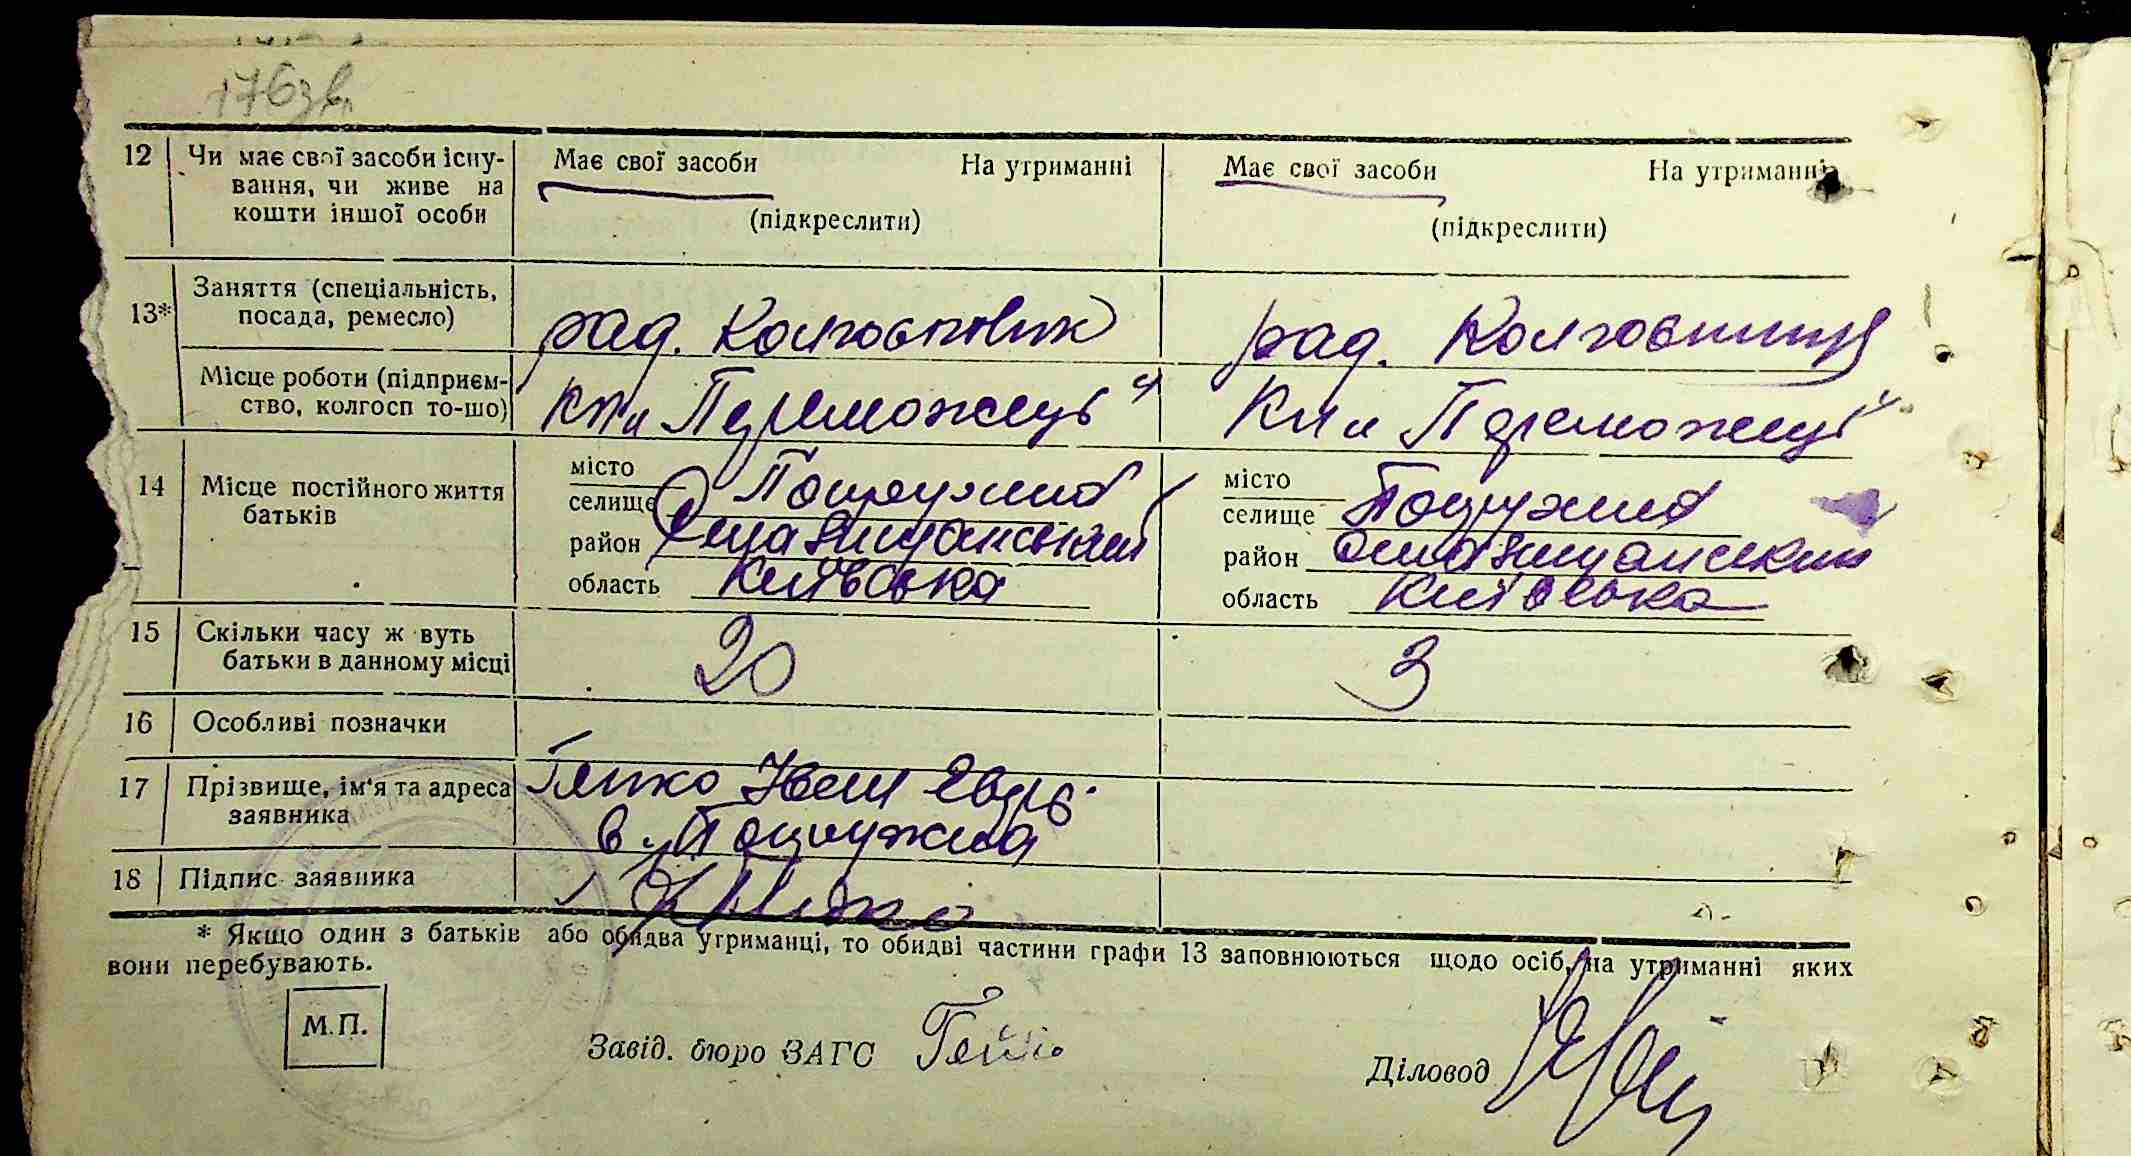 176зв
12 Чи має свої засоби існу- Має свої засоби На утриманні Має свої засоби На утриманні
вання, чи живе на
кошти іншої особи (підкреслити) (підкреслити)
Заняття (спеціальність,
13* посада, ремесло) ряд. Колгоспник ряд. Колгоспниця
Місце роботи (підприєм-
ство, колгосп то-що) К-п „Переможець" К-п „Переможець"
місто місто
14 Місце постійного життя селище Поцружина селище Поцружина
батьків район район
область Київська область Київська
15 Скільки часу ж вуть 20 3
батьки в данному місці
16 Особливі позначки
17 Прізвище, ім'я та адреса Іван
заявника
18 Підпис заявника
* Якщо один з батьків або обидва утриманці, то обидві частини графи 13 заповнюються щодо осіб, на утриманні яких
вони перебувають.
М.П.
Завід. бюро ЗАГС
Діловод